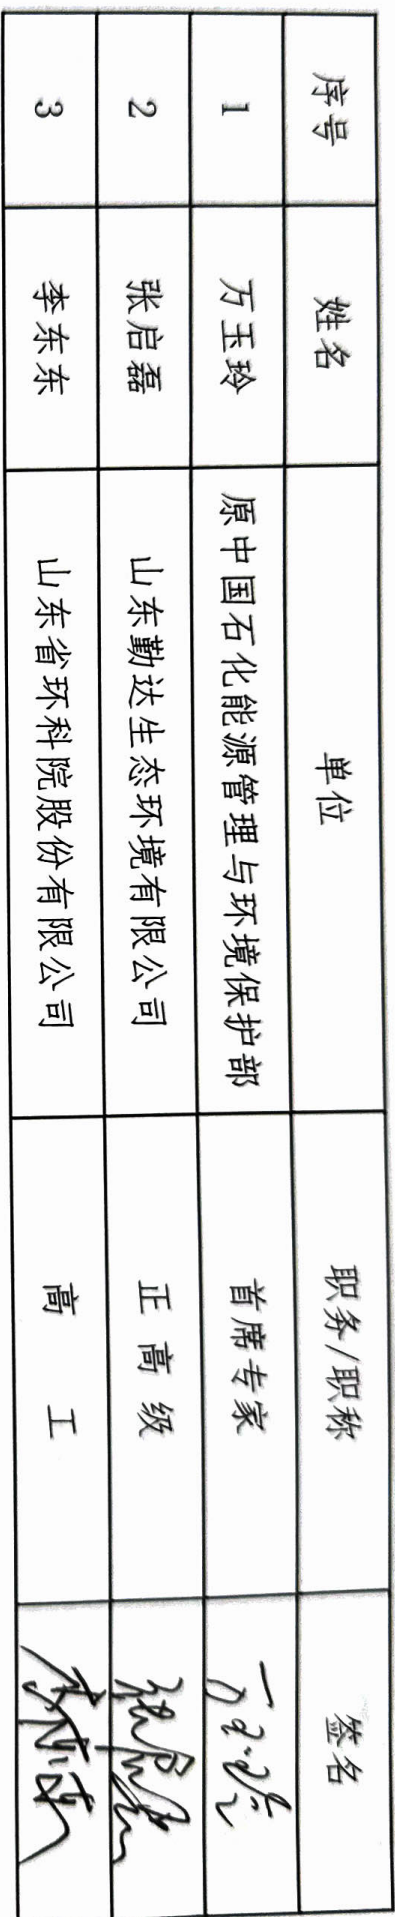 序号 姓名 单位 职务/职称 签名
1 万玉玲 原中国石化能源管理与环境保护部 首席专家 万玉玲
2 张启磊 山东勤达生态环境有限公司 正高级 张启磊
3 李东东 山东省环科院股份有限公司 高工 李东东